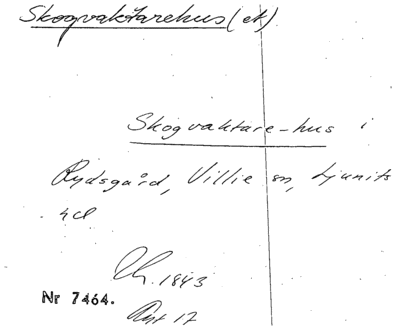 Skogvaktarehus (et)
Skogvaktare-hus i
Rydsgård, Villie sn, Ljunits
hd
1843
Nr 7464.
17